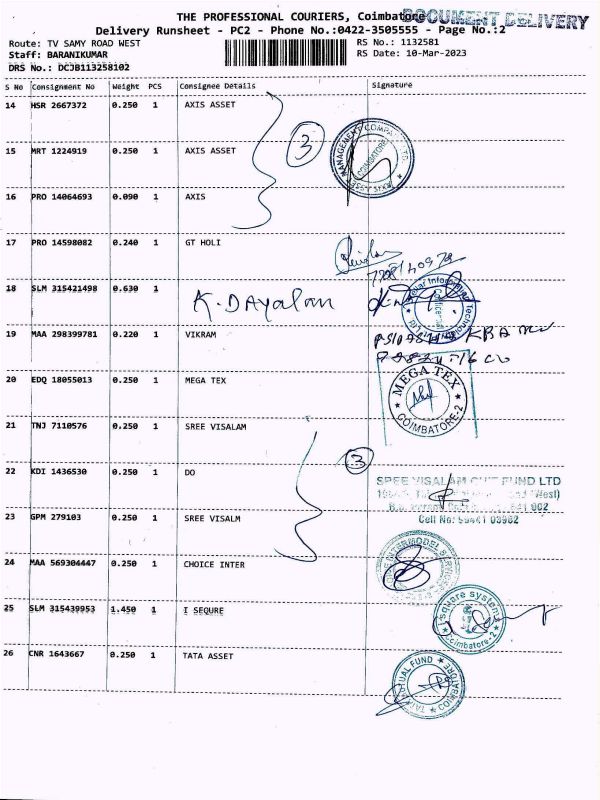 THE PROFESSIONAL COURIERS, Coimbatore
DOCUMENT DELIVERY
Delivery Runsheet - PC2 - Phone No.:0422-3505555 - Page No.:2
Route: TV SAMY ROAD WEST
RS No.: 1132581
Staff: BARANIKUMAR
RS Date: 10-Mar-2023
DRS No.: DCJB113258102
S No Consignment No Weight PCS Consignee Details Signature
14 HSR 2667372 0.250 1 AXIS ASSET
3
AXIS ASSET MANAGEMENT COMPANY LTD.
COIMBATORE
15 MRT 1224919 0.250 1 AXIS ASSET
16 PRO 14064693 0.090 1 AXIS
17 PRO 14598082 0.240 1 GT HOLI
18 SLM 315421498 0.630 1 K. DAYALAN
19 MAA 298399781 0.220 1 VIKRAM
20 EDQ 18055013 0.250 1 MEGA TEX
MEGA TEX
COIMBATORE-2
21 TNJ 7110576 0.250 1 SREE VISALAM
3
22 KDI 1436530 0.250 1 DO
SREE VISALAM CHIT FUND LTD
641 002
Cell No:
23 GPM 279103 0.250 1 SREE VISALM
24 MAA 569304447 0.250 1 CHOICE INTER
25 SLM 315439953 1.450 1 I SEQURE
i square systems
Coimbatore-2
26 CNR 1643667 0.250 1 TATA ASSET
TATA MUTUAL FUND
COIMBATORE